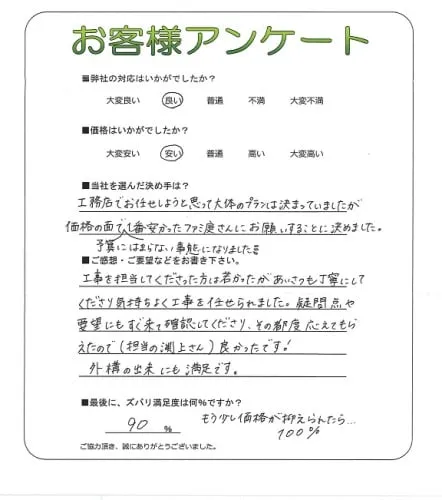 お客様アンケート
■弊社の対応はいかがでしたか?
大変良い 良い 普通 不満 大変不満
■価格はいかがでしたか?
大変安い 安い 普通 高い 大変高い
■当社を選んだ決め手は?
工務店でお任せしようと思って大体のプランは決まっていましたが
価格の面で1番安かったファミ庭さんにお願いすることに決めました。
予算にはまらない事態になりました
■ご感想・ご要望などをお書き下さい。
工事を担当してくださった方は若かったがあいさつも丁寧にして
くださり気持ちよく工事を任せられました。疑問点や
要望にもすぐ来て確認してくださり、その都度応えてもら
えたので(担当の渕上さん)良かったです!
外構の出来にも満足です。
■最後に、ズバリ満足度は何%ですか?
90 % もう少し価格が抑えられたら...
100%
ご協力頂き、誠にありがとうございました。